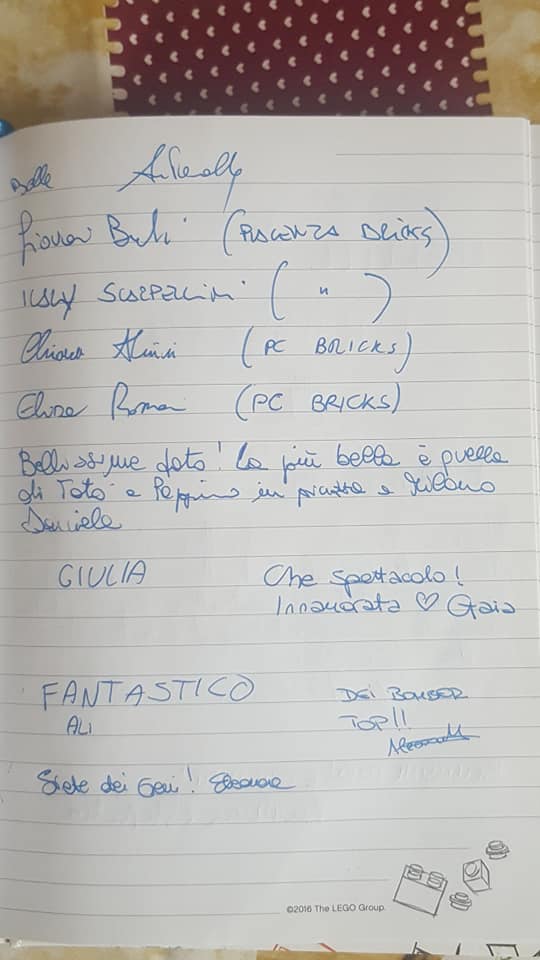 Belle
(PIACENZA BRICKS)
( " )
Chiara (PC BRICKS)
Elisa (PC BRICKS)
Bellissime foto! La più bella è quella
di Totò e Peppino in piazza a Milano
Daniele
GIULIA
Che spettacolo!
Innamorata ♡ Gaia
FANTASTICO
ALI
DEI BOMBER
TOP!!
Siete dei Geni! Eleonora
©2016 The LEGO Group.